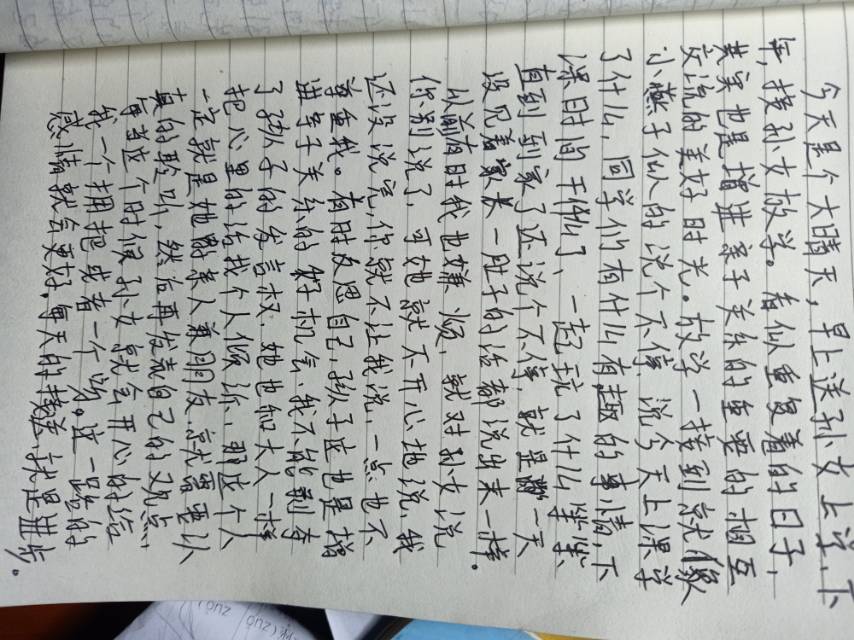 今天是个大晴天，早上送孙女上学，下
午，接孙女放学。看似重复着的日子，
其实也是增进亲子关系的重要的相互
交流的美好时光。放学一接到就像
小燕子似的说个不停，说今天上课学
了什么，同学们有什么有趣的事情，下
课时间干俐了、一起玩了什么等等，
直到到家了还说个不停，就是跟一天
没见着家长一肚子的话都说出来一样。
以前有时我也嫌烦，就对孙女说
你别说了，可她就不开心地说，我
还没说完，你就不让我说，一点也不
尊重我。有时反思自己，孩子这也是增
进亲子关系的好机会，我不能剥夺
了孩子的发言权，她也和大人一样
把心里的话找个人倾诉，那这个人
一定就是她的亲人兼朋友，就需要认
真的聆听，然后再发表自己的观点，
每当这个时候孙女就会开心的给
我一个拥抱或者一个吻。这一路的
感情就会更好，每天的接送就是进步。
zuó
(zuǒ